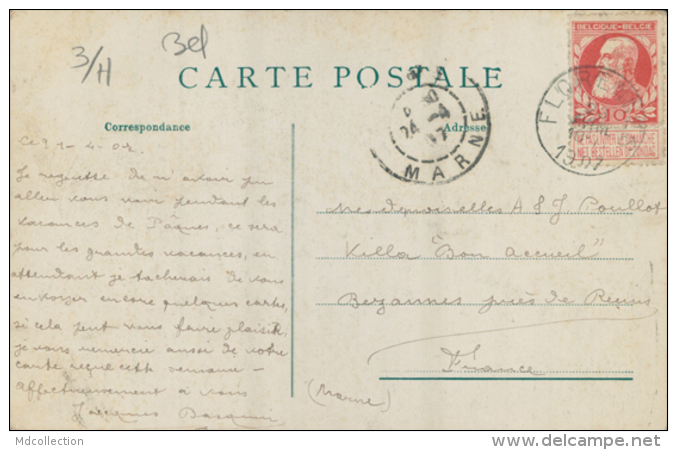 3/H
Bel
BELGIQUE-BELGIE
10
NE PAS LIVRER LE DIMANCHE
NIET BESTELLEN OP ZONDAG
CARTE POSTALE
FLOR
1907
MARNE
Correspondance
Adresse
Je regrette de n'avoir pu
aller vous voir pendant les
vacances de Pâques, ce sera
pour les grandes vacances, en
attendant je tacherais de vous
envoyer encore quelques cartes,
si cela peut vous faire plaisir,
je vous remercie aussi de votre
carte reçue cette semaine -
Affectueusement à vous
Jacques
Mesdemoiselles A & J. Poullot
Villa "Bon Accueil"
Bezannes près de Reims
France
(Marne)
Mdcollection
http://mdcollection.delcampe.net